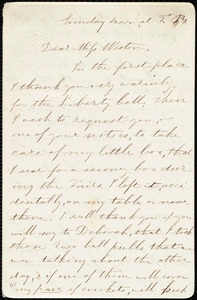 Sunday Morn at
Dear Miss Weston,
In the first place
I thank you very warmly
for the Liberty bell; then
I wish to request you, or
one of your sisters, to take
care of my little box, that
I use for a money box dur
ing the Fair. I left it acci
dentally, on my table or near
there. I will thank you if you
will say to Deborah, that I took
those two bell pulls that a
was talking about the other
day, & if one of them will cover
my pair of will